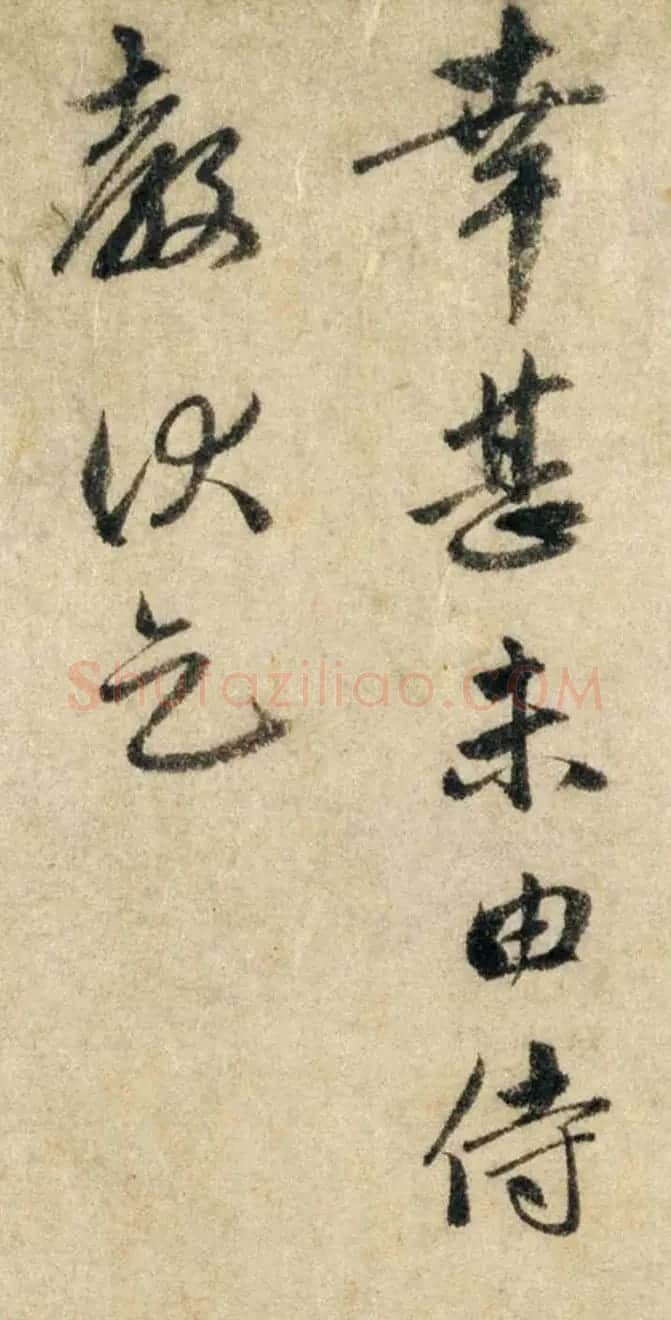 幸甚未由侍
教伏乞
Shufaziliao.COM